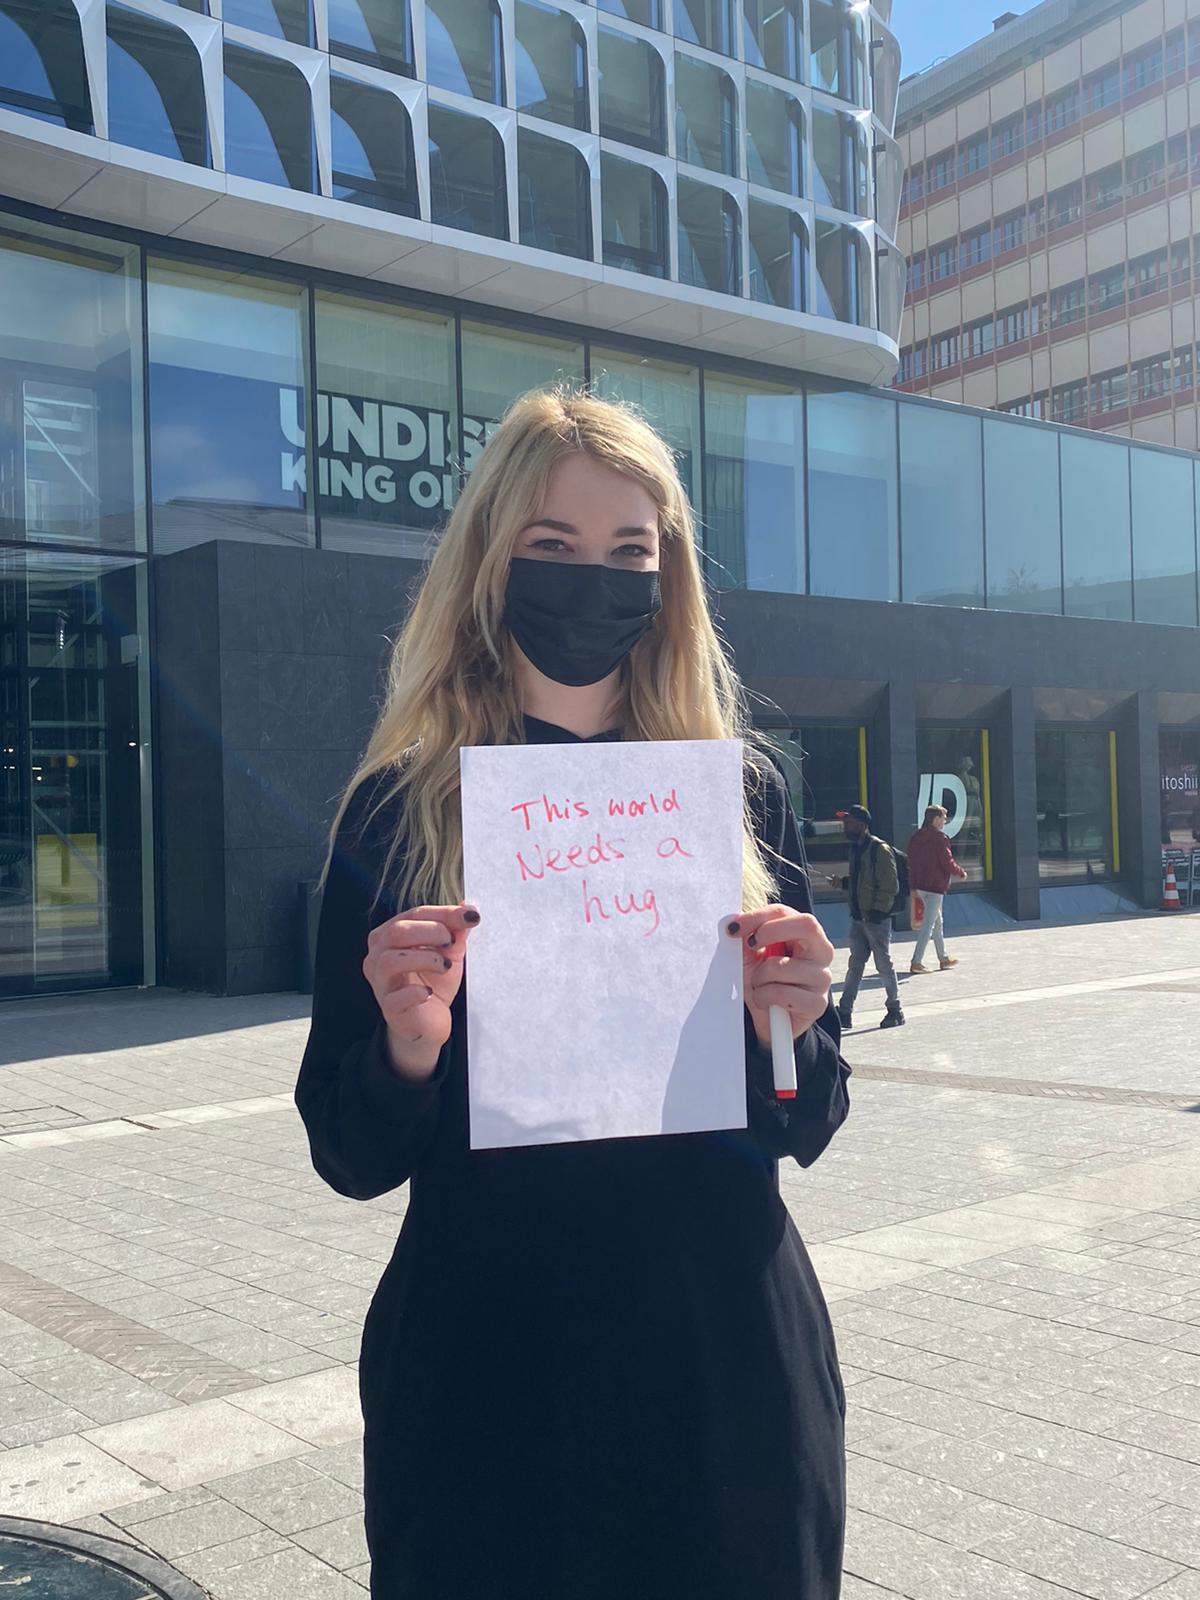 UNDIS
KING OF
This world
Needs a
hug
JD
itoshii